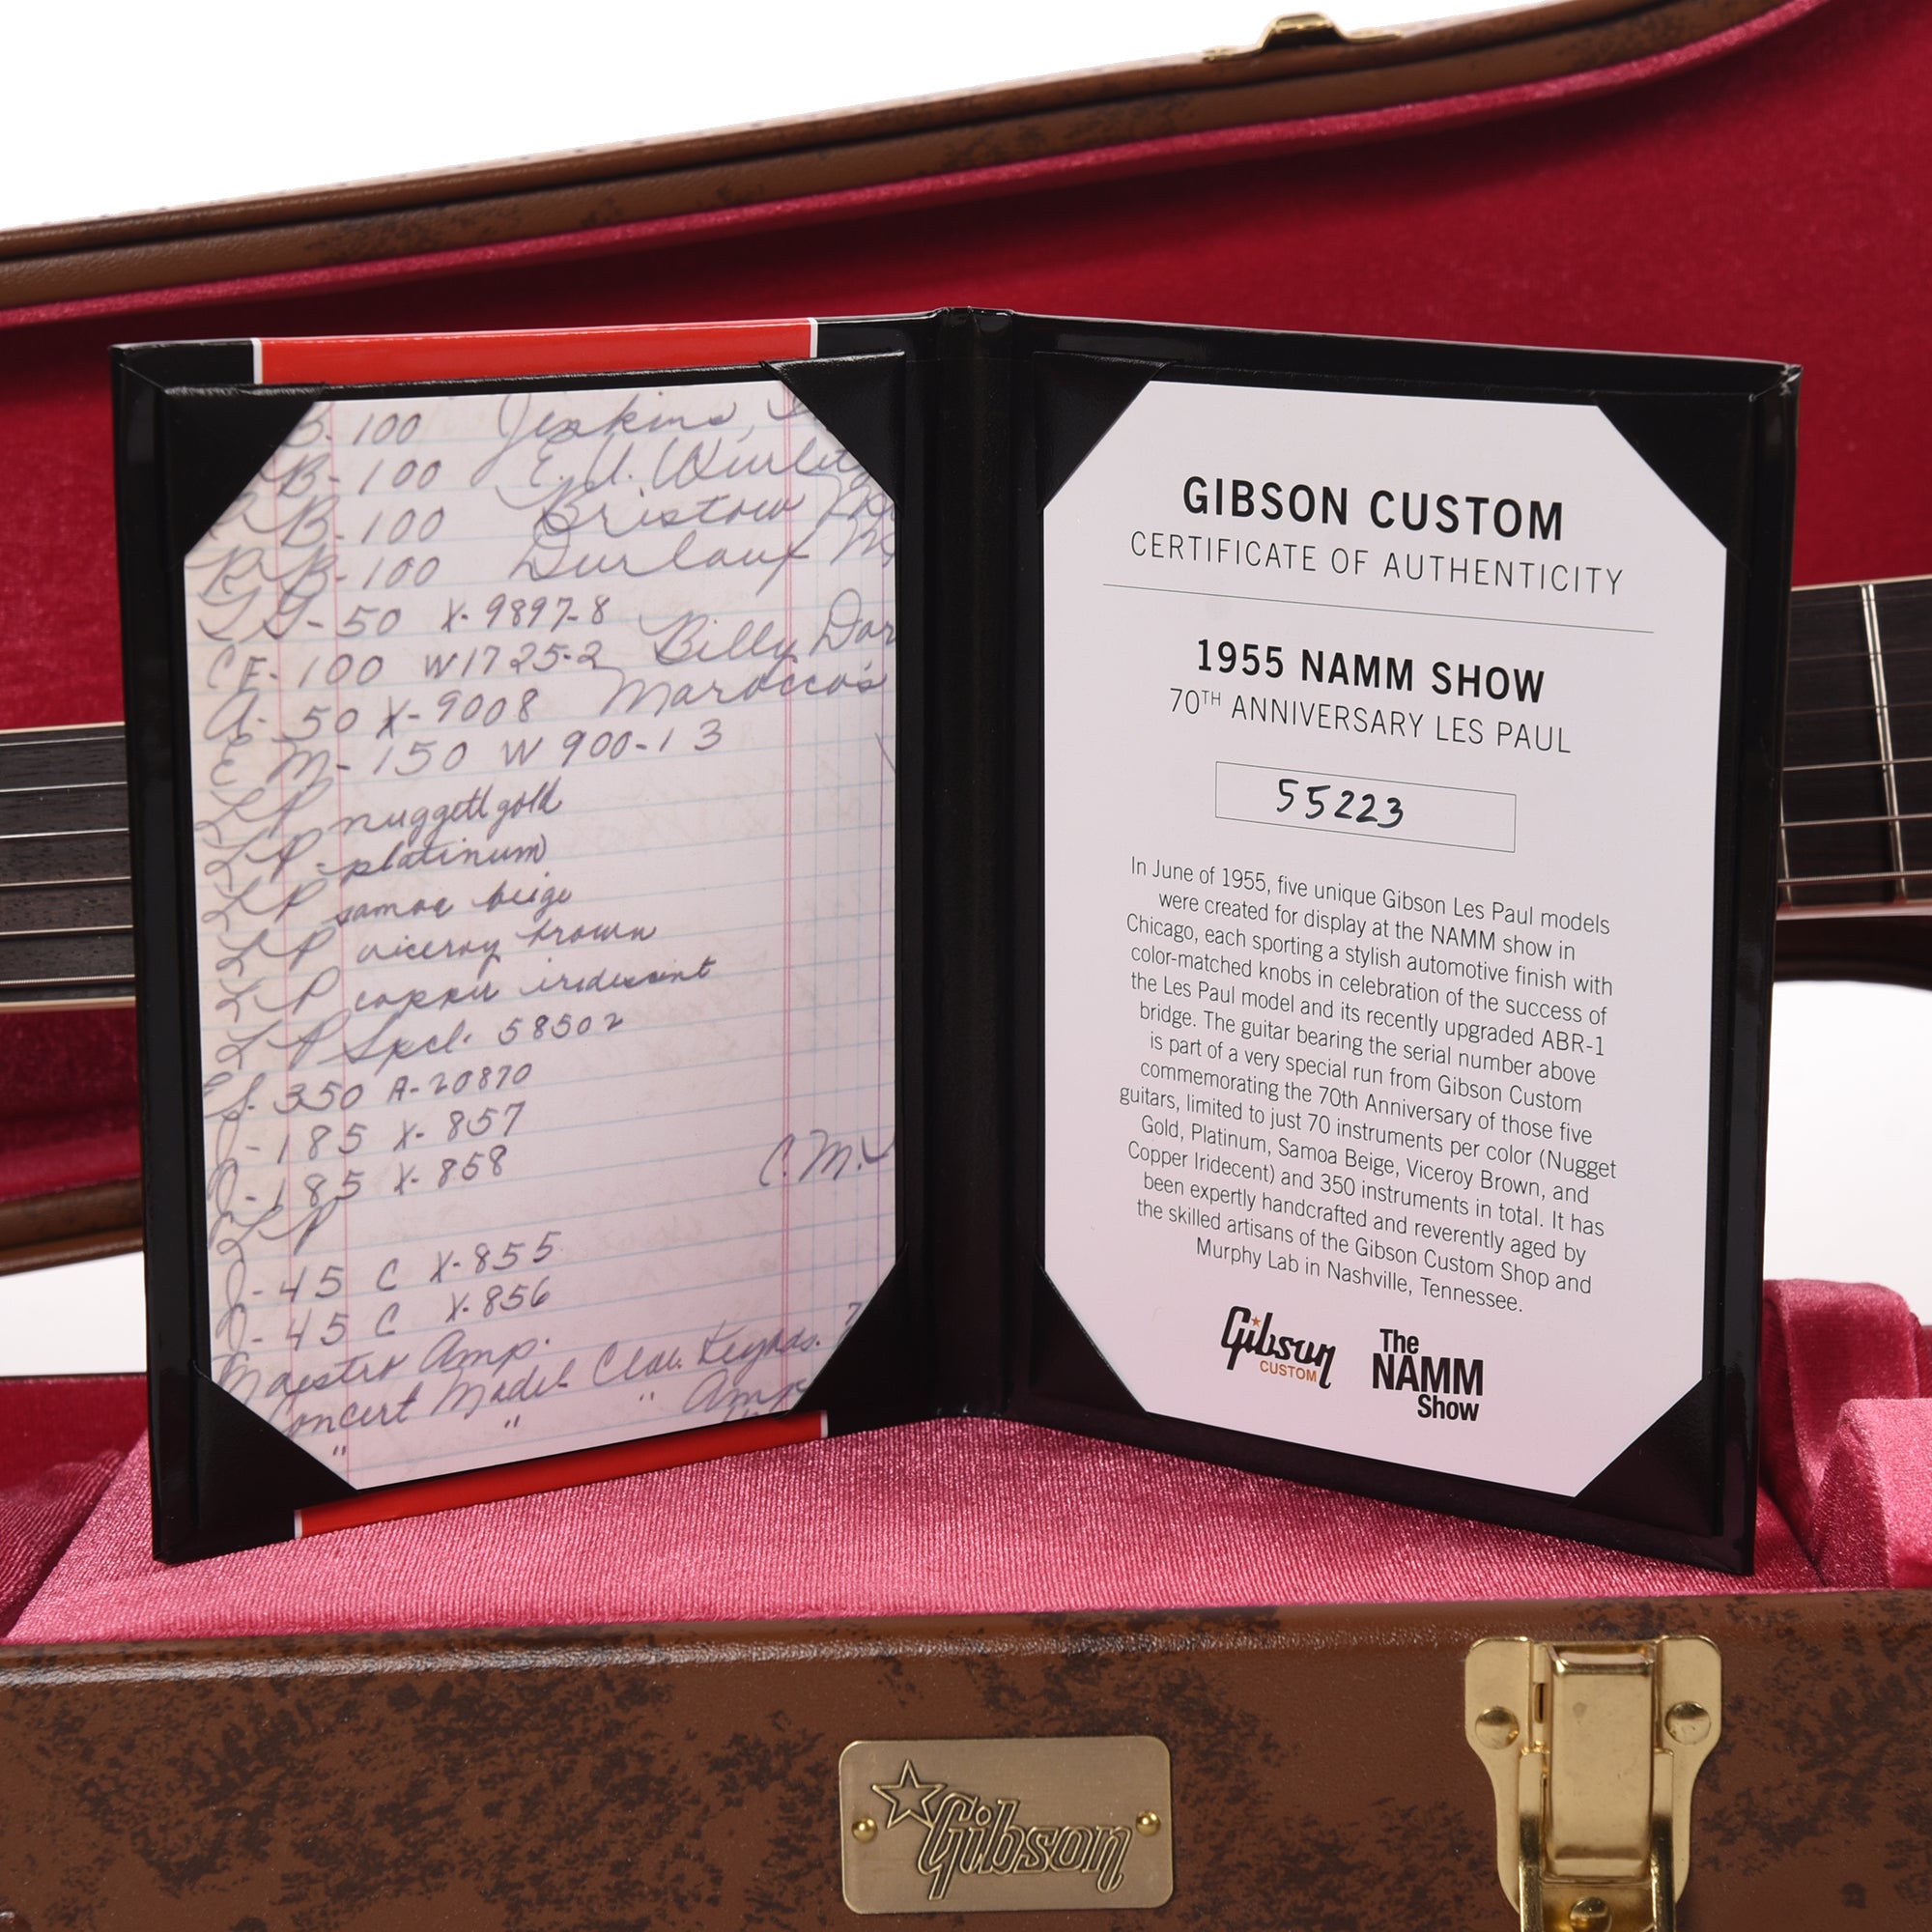 B-100 Jenkins,
B-100 E. U. Wurlitz
R B-100 Bristow
R B-100 Durlauf M
G-50 X-9897-8
CF-100 W1725-2 Billy Dar
A-50 X-9008 Marocco's
E M-150 W 900-13
LP nuggett gold
LP-platinum
LP samoa beige
LP viceroy brown
LP copper iridescent
LP Spcl. 58502
ES-350 A-20870
J-185 X-857
J-185 X-858 C.M.
LP
J-45 C X-855
J-45 C X-856
Maestro Amp.
Concert Model Clav. Keybds. 7
" " " Amp
GIBSON CUSTOM
CERTIFICATE OF AUTHENTICITY
1955 NAMM SHOW
70TH ANNIVERSARY LES PAUL
55223
In June of 1955, five unique Gibson Les Paul models
were created for display at the NAMM show in
Chicago, each sporting a stylish automotive finish with
color-matched knobs in celebration of the success of
the Les Paul model and its recently upgraded ABR-1
bridge. The guitar bearing the serial number above
is part of a very special run from Gibson Custom
commemorating the 70th Anniversary of those five
guitars, limited to just 70 instruments per color (Nugget
Gold, Platinum, Samoa Beige, Viceroy Brown, and
Copper Iridecent) and 350 instruments in total. It has
been expertly handcrafted and reverently aged by
the skilled artisans of the Gibson Custom Shop and
Murphy Lab in Nashville, Tennessee.
Gibson
CUSTOM
The
NAMM
Show
Gibson